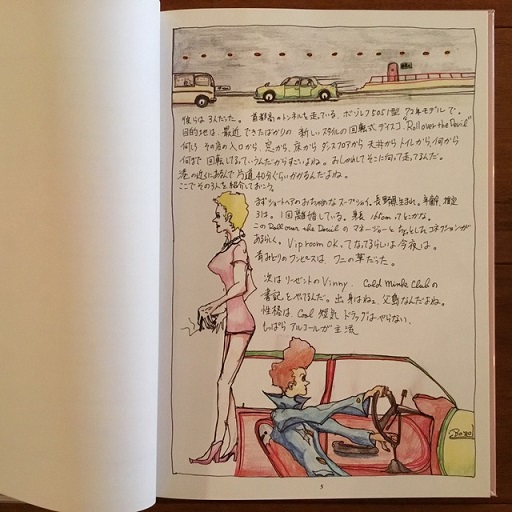 俺らは3人だった。 首都高のトンネルを走っている、ボブルフ5051型 72年モデルで。
目的地は、最近できたばかりの 新しいスタイルの回転式ディスコ "Roll over the Devil"
何しろ その店の入口から、窓から、床から ダンスフロアから 天井から トイレから、何から
何まで 回転してしまっているんだからすごいよね。おしゃれしてそこに向って走ってるんだ。
港の近くにあるんで 片道40分ぐらいかかるんだよね。
ここでその3人を紹介しておこう。
まずショートヘアの 長野県生まれ。年齢 推定
31才。 1回離婚している。 160cmってとこかな。
このRoll over the Devil の マネージャーと コネクションが
あるらしく。 Vip room OK.ってなってるらしいよ今夜は。
青みどりのワンピースは ワニの革だった。
次は リーゼントのVinny. Cold Mink Clubの
書記をやってるんだ。 出身はねぇ、父島なんだよね。
性格は Cool 短気 ドラッグはやらない、
もっぱら アルコールが 主流
5